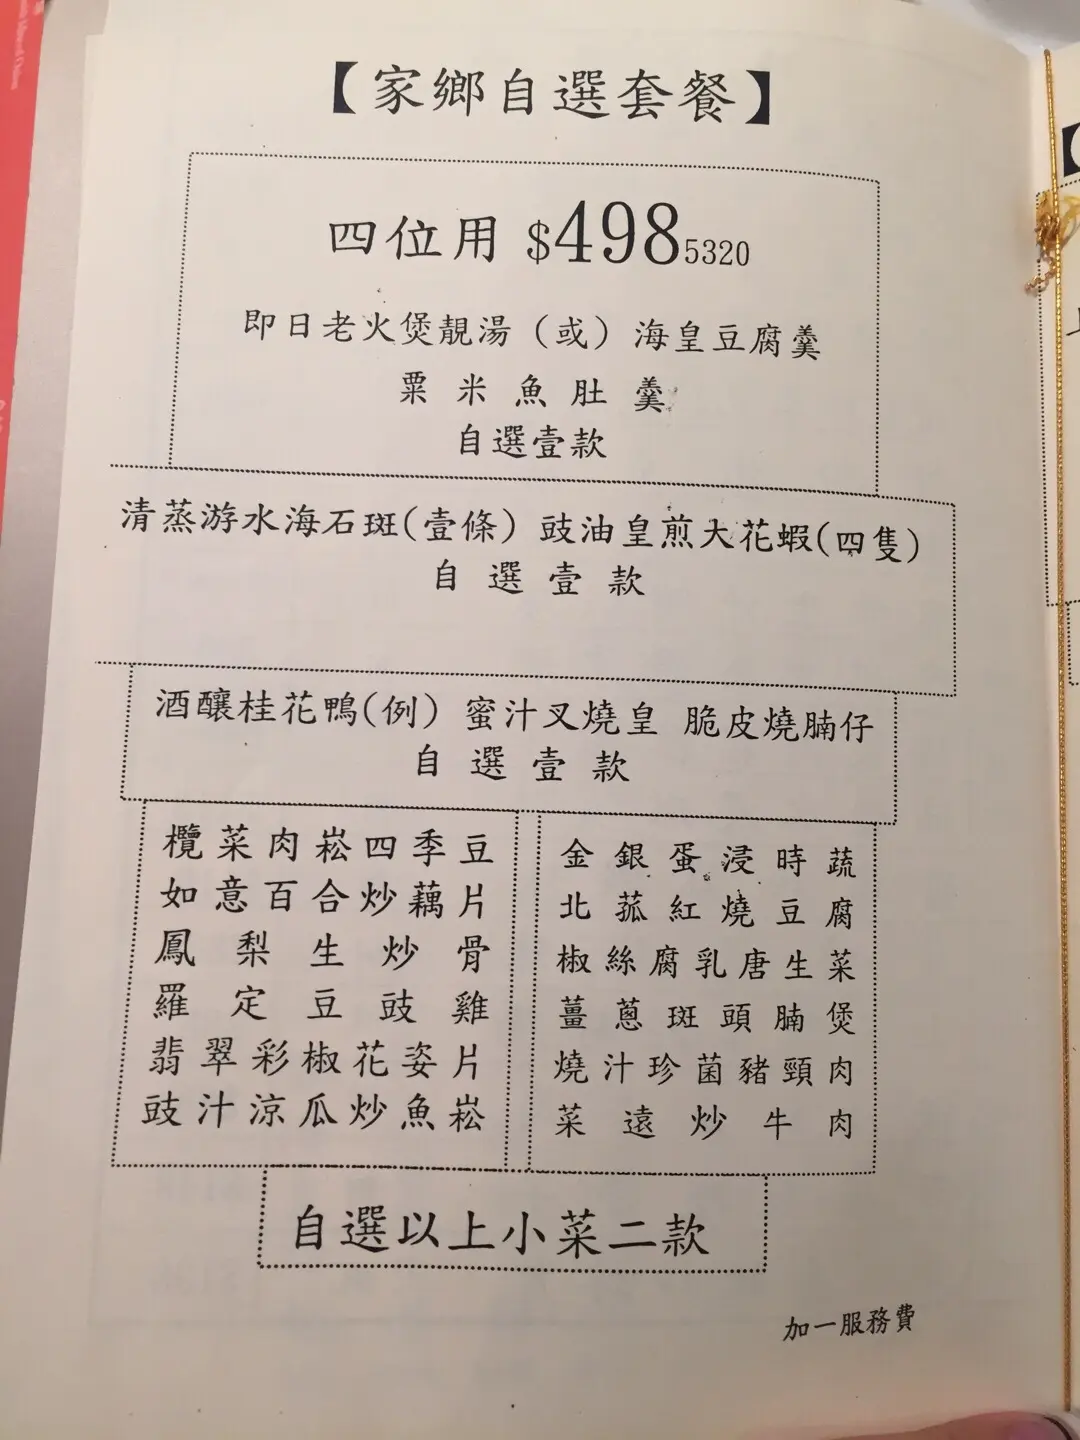 【家鄉自選套餐】
四位用 $498 5320
即日老火煲靚湯（或）海皇豆腐羹
粟米魚肚羹
自選壹款
清蒸游水海石斑(壹條) 豉油皇煎大花蝦(四隻)
自選壹款
酒釀桂花鴨(例) 蜜汁叉燒皇 脆皮燒腩仔
自選壹款
欖菜肉崧四季豆
如意百合炒藕片
鳳梨生炒骨
羅定豆豉雞
翡翠彩椒花姿片
豉汁涼瓜炒魚崧
金銀蛋浸時蔬
北菰紅燒豆腐
椒絲腐乳唐生菜
薑蔥斑頭腩煲
燒汁珍菌豬頸肉
菜遠炒牛肉
自選以上小菜二款
加一服務費